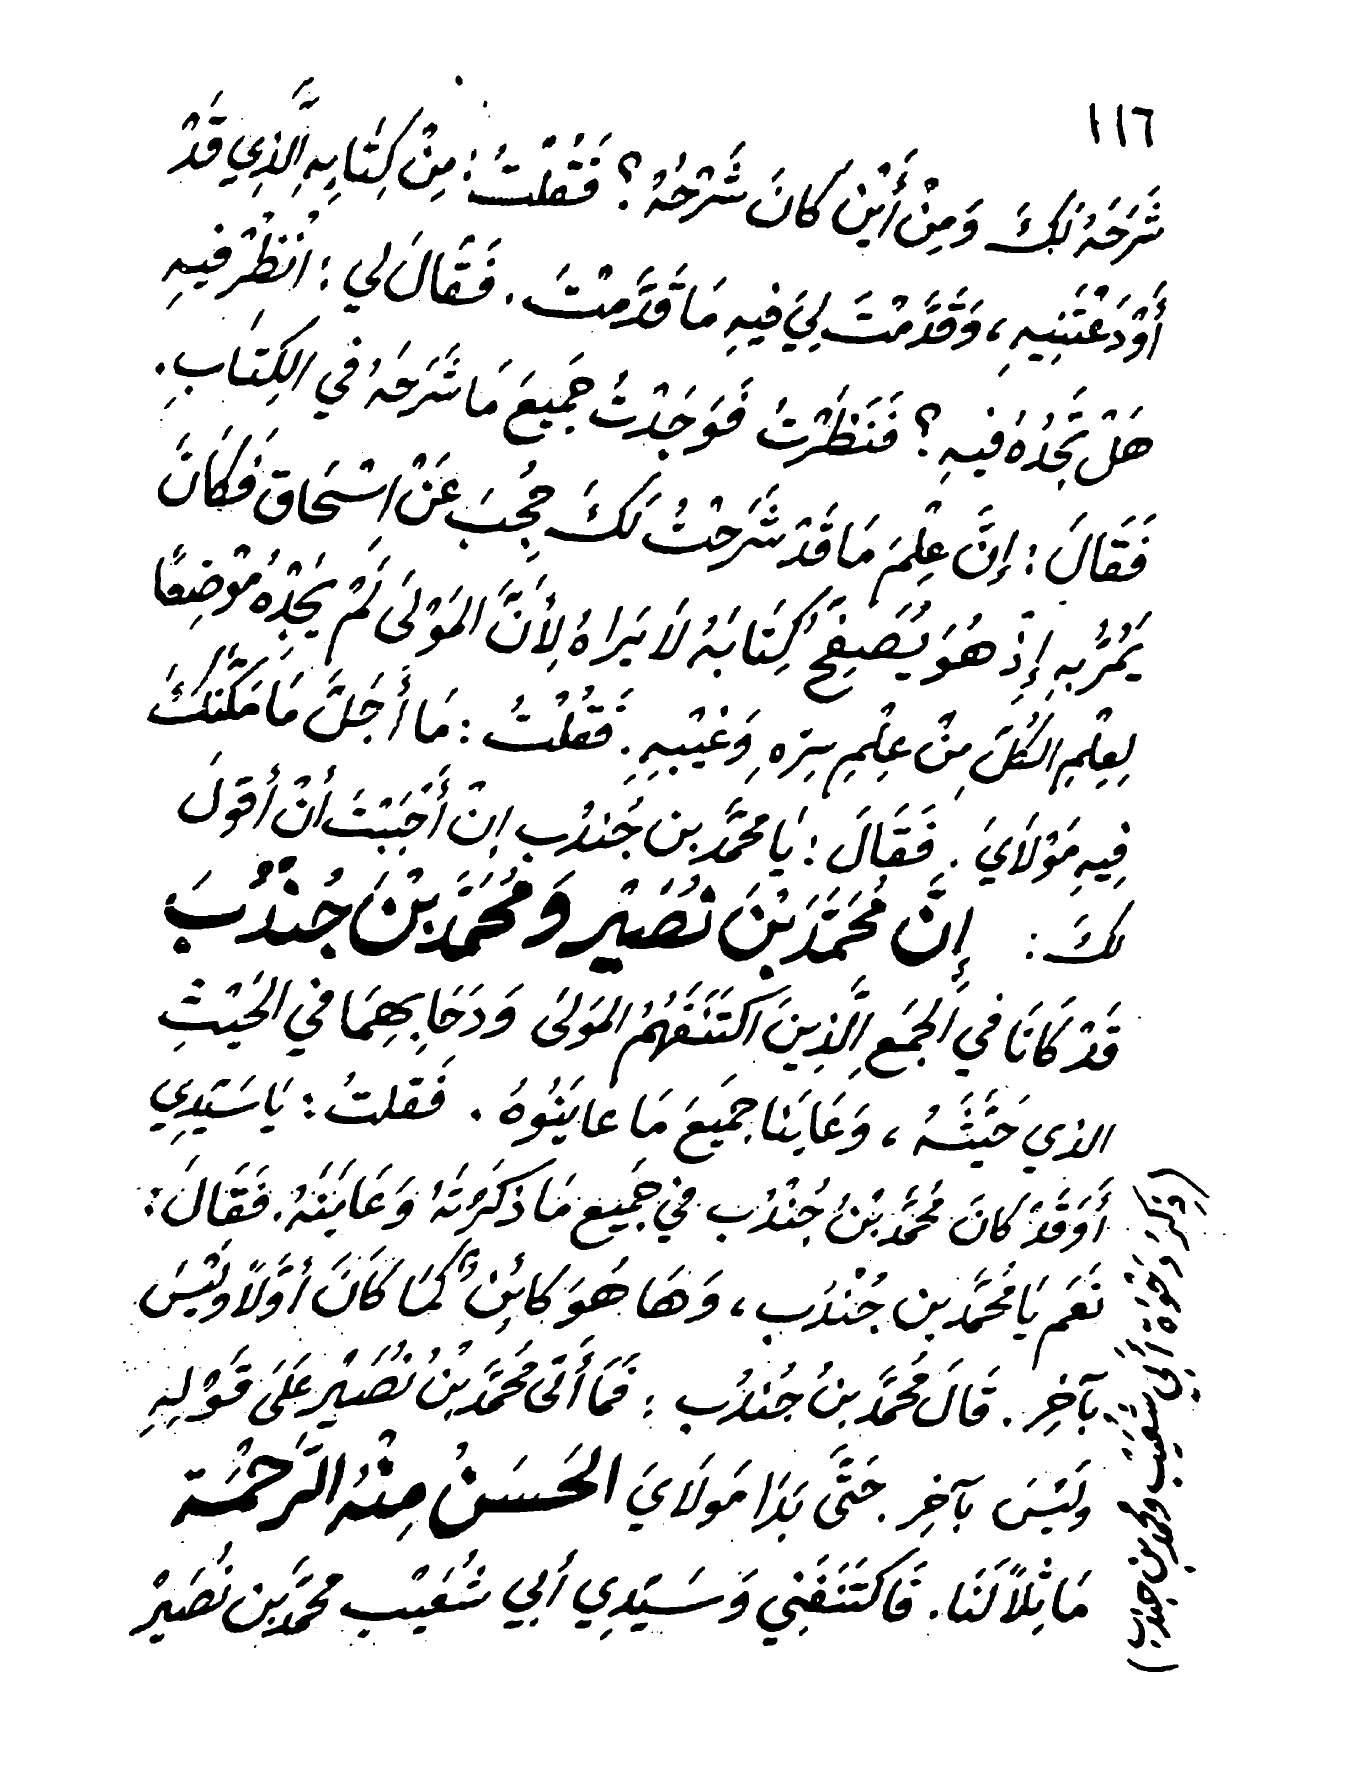 ١١٦
شَرَحَهُ لَكَ وَمِنْ أَيْنَ كَانَ شَرْحُهُ؟ فَقُلْتُ: مِنْ كِتَابِهِ الَّذِي قَدْ
أَوْدَعْتَنِيهِ، وَقَدَّمْتَ لِيَ فِيهِ مَا قَدَّمْتَ. فَقَالَ لِي: انْظُرْ فِيهِ
هَلْ تَجِدُهُ فِيهِ؟ فَنَظَرْتُ فَوَجَدْتُ جَمِيعَ مَا شَرَحَهُ فِي الكِتَابِ.
فَقَالَ: إِنَّ عِلْمَ مَا قَدْ شَرَحْتُ لَكَ حُجِبَ عَنْ اسْحَاق فَكَانَ
يَمُرُّ بِهِ إِذْ هُوَ يُصَفِّحُ كِتَابَهُ لَا يَرَاهُ لِأَنَّ المَوْلَى لَمْ يَجِدْهُ مَوْضِعًا
لِعِلْمِ الكُلِّ مِنْ عِلْمِ سِرِّهِ وَغَيْبِهِ. فَقُلْتُ: مَا أَجَلَّ مَا مَكَّنَكَ
فِيهِ مَوْلَايَ. فَقَالَ: يَا مُحَمَّد بن جُنْدُب إِنْ أَحْبَبْتَ أَنْ أَقُولَ
لَكَ: إِنَّ مُحَمَّدَ بْنَ نُصَيْرٍ وَمُحَمَّدَ بْنَ جُنْدُبَ
قَدْ كَانَا فِي الجَمْعِ الَّذِينَ اكْتَنَفَهُمُ المَوْلَى وَدَحَا بِهِمَا فِي الحَيْثِ
الذي حَيَّثَهُ، وَعَايَنَا جَمِيعَ مَا عَايَنُوهُ. فَقلتُ: يَا سَيِّدِي
أَوَقَدْ كَانَ مُحَمَّدُ بْنُ جُنْدُب فِي جَمِيعِ مَا ذَكَرْتَهُ وَعَايَنَهُ. فَقَالَ:
نَعَم يَا مُحَمَّد بن جُنْدُب، وَهَا هُوَ كَائِنٌ كَمَا كَانَ أَوَّلًا وَلَيْسَ
بِآخِرٍ. قَالَ مُحَمَّدُ بنُ جُنْدُب: فَمَا أَتَى مُحَمَّدُ بْنُ نُصَيْرٍ عَلَى قَوْلِهِ
وَلَيْسَ بِآخِرٍ. حَتَّى بَدَا مَولَايَ الحَسَنُ مِنْهُ الرَّحْمَة
مَاثِلًا لَنَا. فَاكْتَنَفَنِي وَسَيِّدِي أَبِي شُعَيْب مُحَمَّد بن نُصَيْرٍ
(ذِكْرُ دَحْوَةِ أَبِي شُعَيْب ومحمد بن جندب)